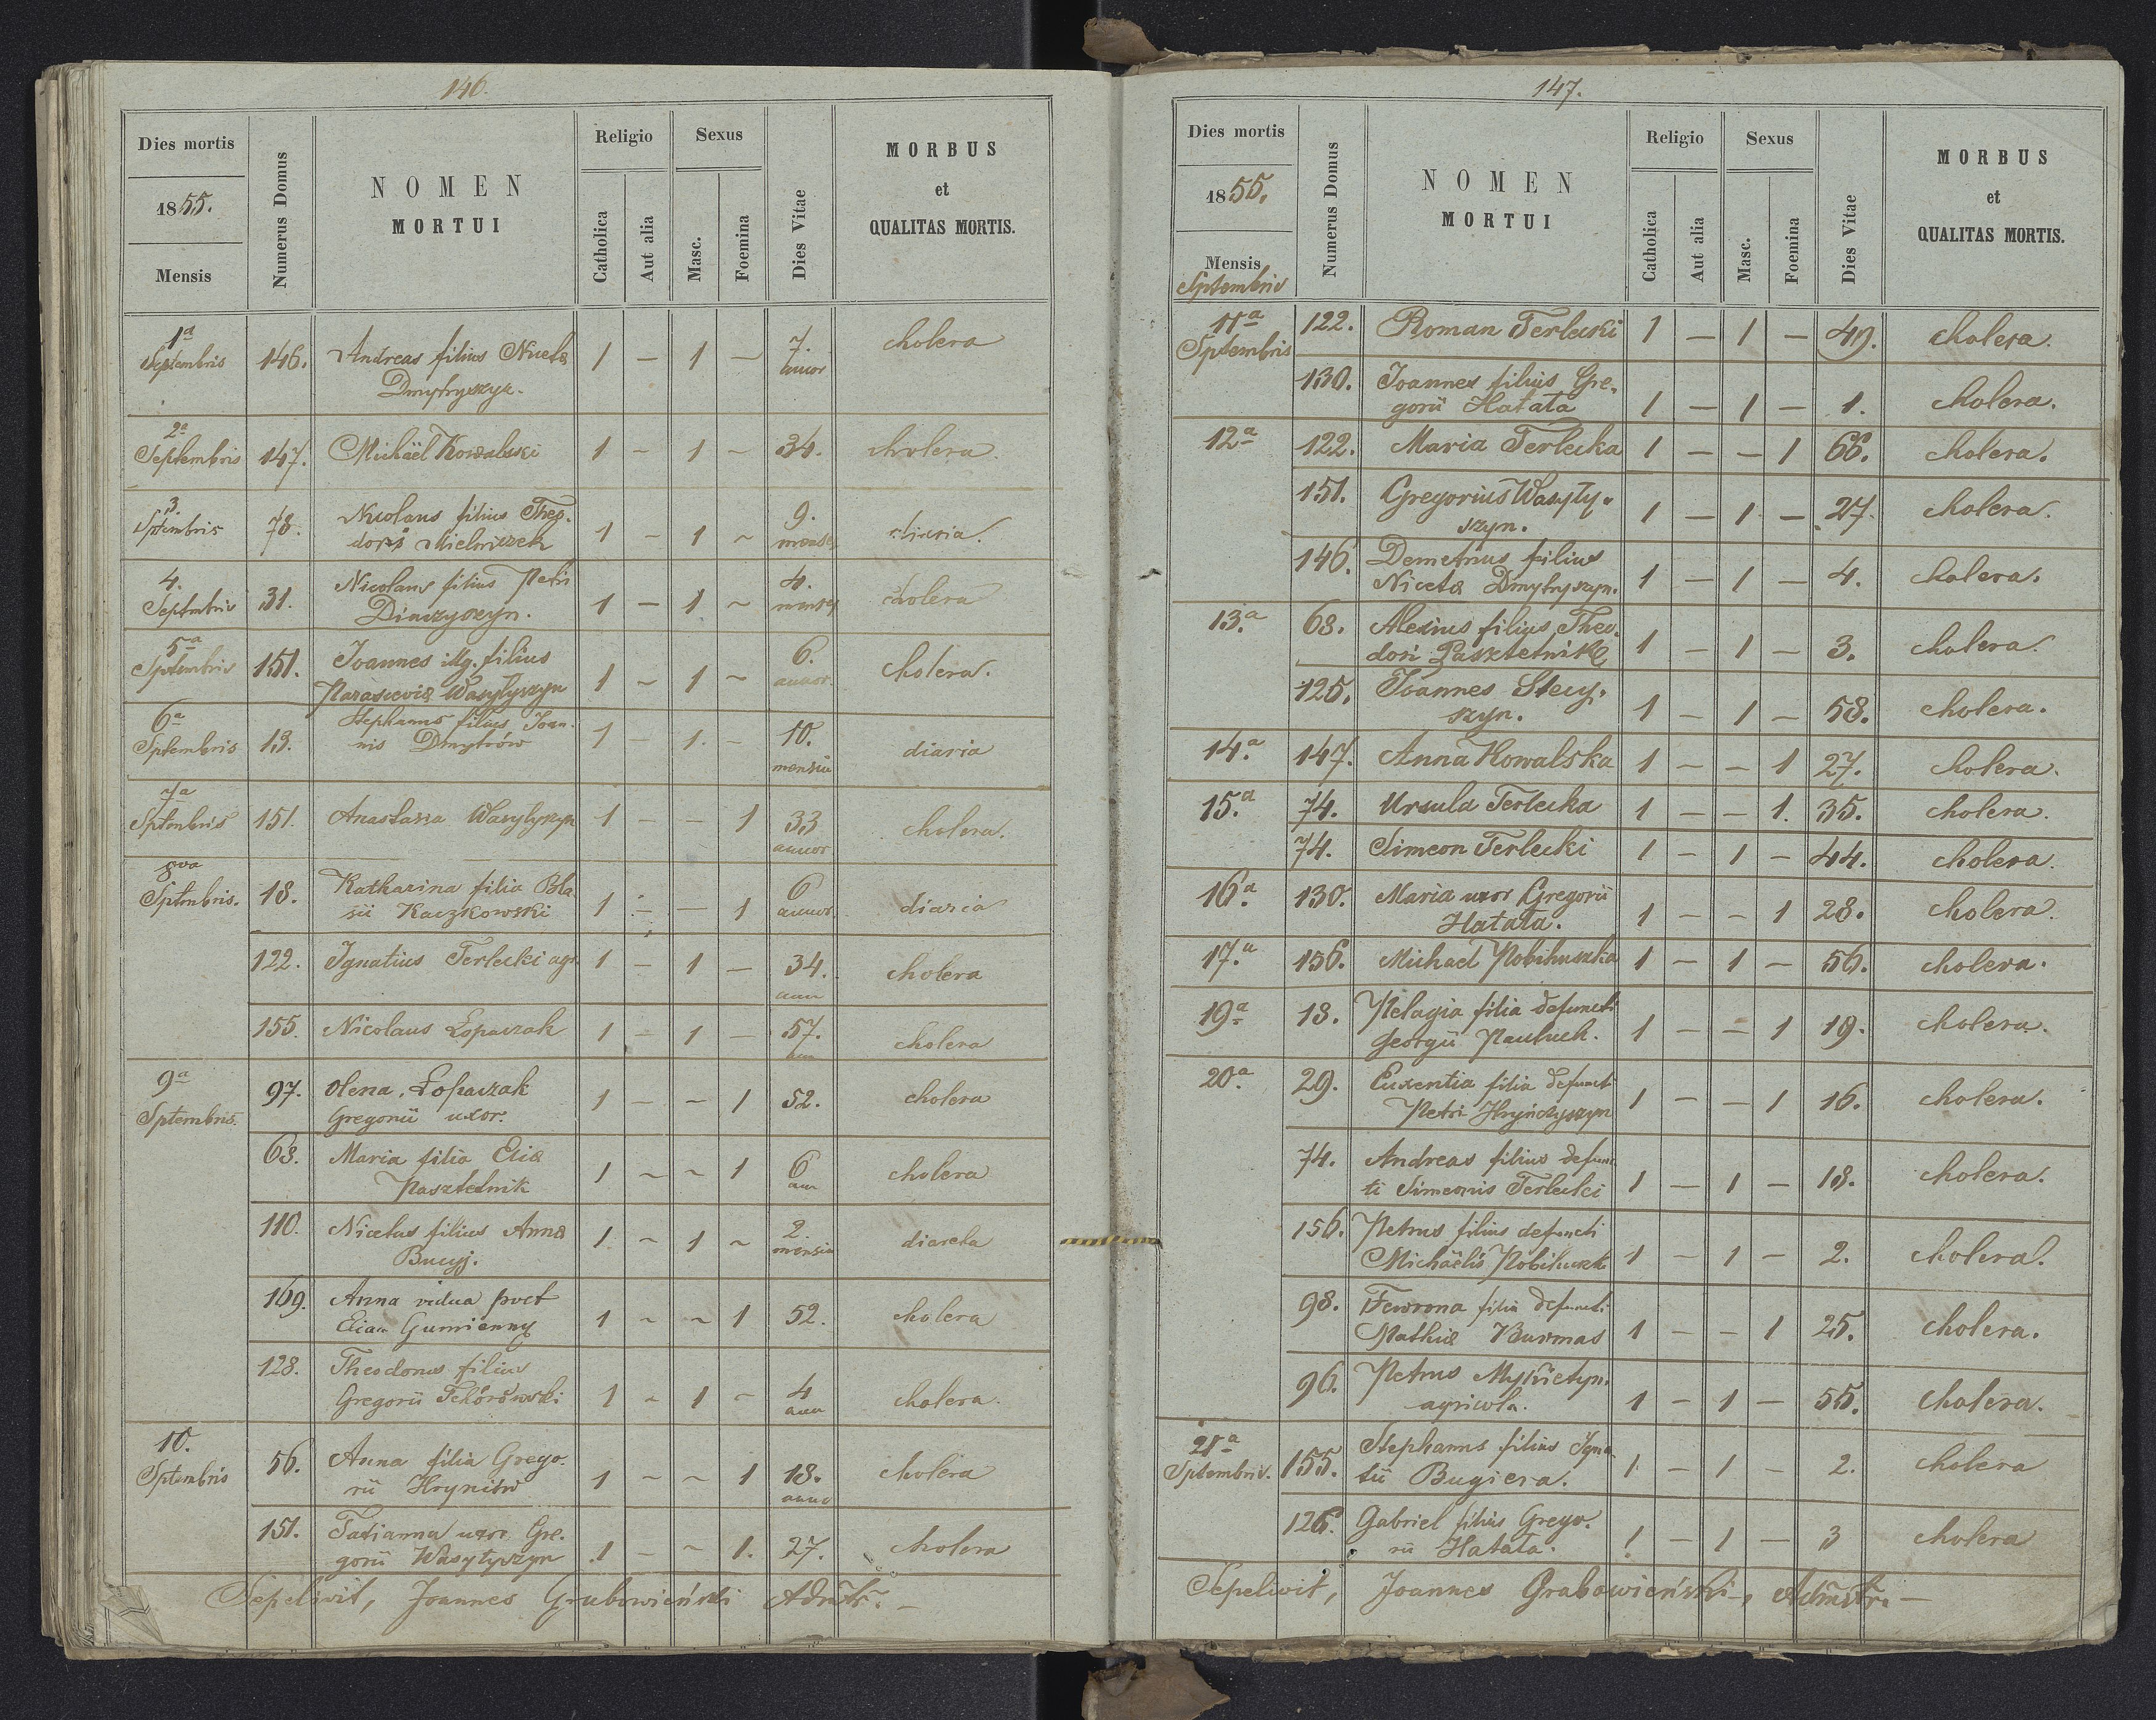 146.
Dies mortis
1855.
Mensis
Numerus Domus
NOMEN
MORTUI
Religio
Catholica
Aut alia
Sexus
Masc.
Foemina
Dies Vitae
MORBUS
et
QUALITAS MORTIS.
1a Septembris 146. Andreas filius Niceta 1 – 1 – 7. annor cholera
Dmytryszyn.
2a Septembris 147. Michaël Kowalski 1 – 1 – 34. cholera.
3. Septembris 78. Nicolaus filius Theo- 1 – 1 ~ 9. menses diaria.
dori Mielniczek
4. Septembris 31. Nicolaus filius Petri 1 – 1 ~ 4. menses cholera
5a Septembris 151. Joannes illg. filius 1 ~ 1 ~ 6. annor. cholera.
Parascevia Wasylyszyn
6a Septembris 13. Stephanus filius Joan- 1 – 1. – 10. mensiu diaria
nis Dmytrów
7a Septembris 151. Anastasia Wasylyszyn 1 – – 1 33 annor cholera.
8va Septembris. 18. Katharina filia Bla- 1 – – 1 6 annor diaria
sii Kaczkowski
122. Ignatius Terlecki agr. 1 – 1 – 34. ann cholera
155. Nicolaus Łopaczak 1 – 1 – 57. ann cholera
9a Septembris. 97. Olena Łopaczak 1 – – 1 52. cholera
Gregorii uxor.
68. Maria filia Elia 1 ~ ~ 1 6 ann cholera
Pasztetnik
110. Nicetus filius Anna 1. ~ 1 ~ 2. mensiu
169. Anna vidua post 1 ~ ~ 1 52. cholera
Eliam Gumienny
128. Theodorus filius
Gregorii 1 ~ 1 – 4 ann cholera.
10. Septembris 56. Anna filia Grego- 1 ~ ~ 1 18. anno cholera
rii Hryniów
151. Tatianna uxor Gre- 1 – ~ 1. 27. cholera
gorii Wasylyszyn
Sepelivit, Joannes Grabowieński Admtr. –
147.
Dies mortis
1855.
Mensis
Septembris
Numerus Domus
NOMEN
MORTUI
Religio
Catholica
Aut alia
Sexus
Masc.
Foemina
Dies Vitae
MORBUS
et
QUALITAS MORTIS.
11a Septembris 122. Roman Terlecki 1 – 1 – 49. cholera.
130. Joannes filius Gre-
gorii Hatata 1 – 1 – 1. cholera.
12a 122. Maria Terlecka 1 – – 1 66. cholera.
151. Gregorius Wasyly-
szyn. 1 – 1 – 27. cholera.
146. Demetrius filius
Niceta Dmytryszyn. 1 – 1 – 4. cholera.
13.a 68. Alexius filius Theo-
dori Pasztetnik 1 – 1 – 3. cholera.
125. Joannes Stecy-
szyn. 1 – 1 – 58. cholera.
14.a 147. Anna Kowalska 1 – – 1 27. cholera.
15.a 74. Ursula Terlecka 1 – – 1. 35. cholera.
74. Simeon Terlecki 1 – 1 – 44. cholera.
16.a 130. Maria uxor Gregorii
Hatata. 1 – – 1 28. cholera.
17.a 156. Michael Pobihuszka 1 – 1 – 56. cholera.
19a 18. Pelagia filia defuncti
Georgii Pauluch. 1 – – 1 19. cholera.
20.a 29. Euxentia filia defuncti
Petri Hryńczyszyn 1 – – 1 16. cholera.
74. Andreas filius defunc
ti Simeonis Terlecki 1 – 1 – 18. cholera.
156. Petrus filius defuncti
Michaëlis Pobihuszk 1 – 1 – 2. cholera.
98. Fewrona filia defuncti
Mathia Burmas 1 – – 1 25. cholera.
96. Petrus Mykietyn.
agricola. 1 – 1 – 55. cholera.
21a Septembris. 155. Stephanus filius Igna-
tii Bugiera. 1. – 1 – 2. cholera
126. Gabriel filius Grego-
rii Hatata. 1 – 1 – 3 cholera
Sepelivit, Joannes Grabowieński, Admstr. –